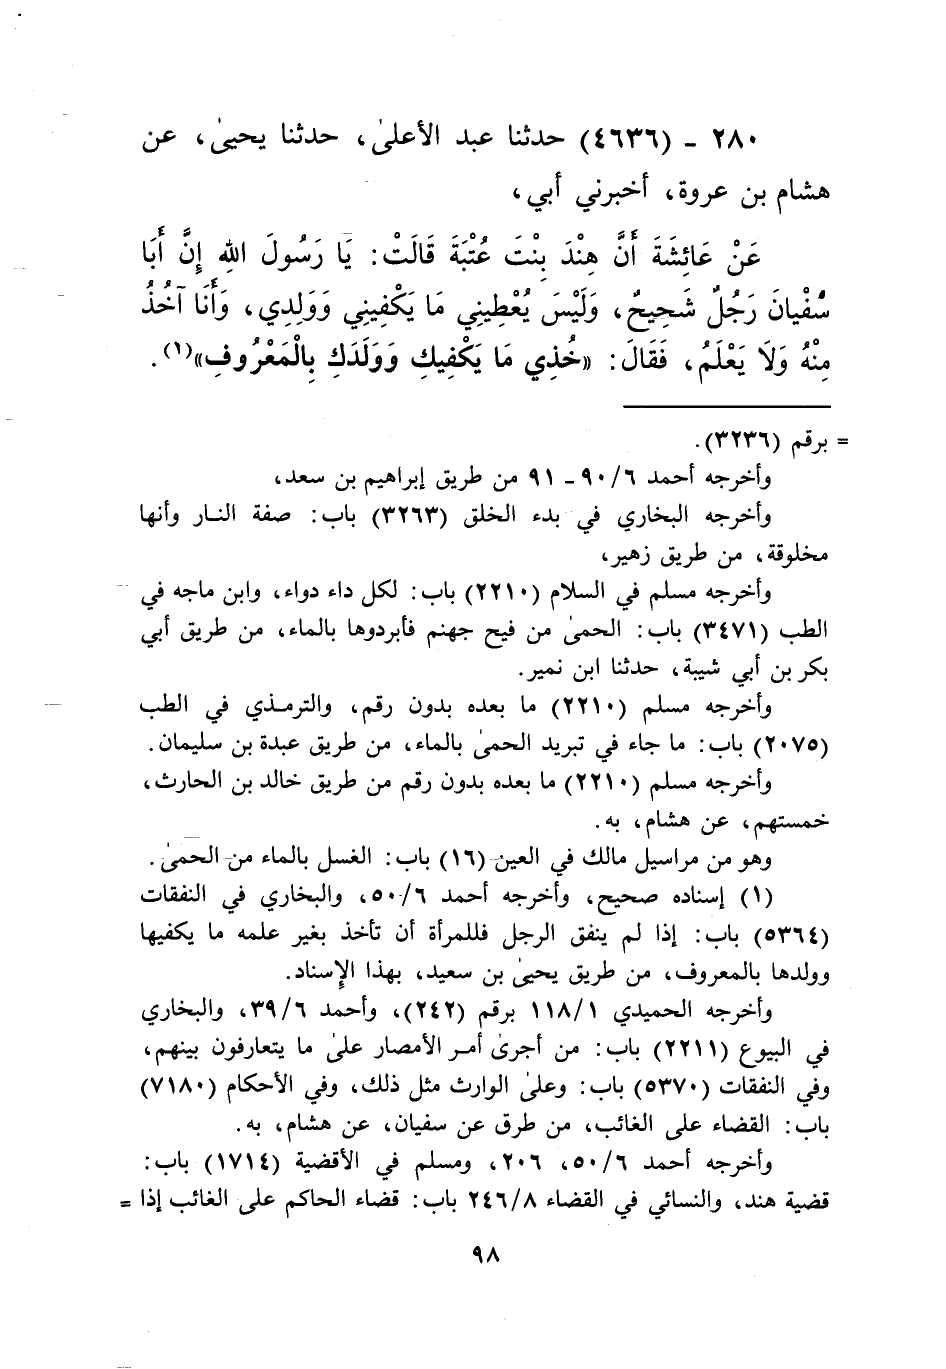 ٢٨٠ - (٤٦٣٦) حدثنا عبد الأعلىٰ، حدثنا يحيىٰ، عن
هشام بن عروة، أخبرني أبي،
عَنْ عَائِشَةَ أَنَّ هِنْدَ بِنْتَ عُتْبَةَ قَالَتْ: يَا رَسُولَ اللهِ إِنَّ أَبَا
سُفْيانَ رَجُلٌ شَحِيحٌ، وَلَيْسَ يُعْطِينِي مَا يَكْفِينِي وَوَلَدِي، وَأَنَا آخُذُ
مِنْهُ وَلَا يَعْلَمُ، فَقَالَ: «خُذِي مَا يَكْفِيكِ وَوَلَدَكِ بِالْمَعْرُوفِ»(١).
= برقم (٣٢٣٦).
وأخرجه أحمد ٩٠/٦ - ٩١ من طريق إبراهيم بن سعد،
وأخرجه البخاري في بدء الخلق (٣٢٦٣) باب: صفة النار وأنها
مخلوقة، من طريق زهير،
وأخرجه مسلم في السلام (٢٢١٠) باب: لكل داء دواء، وابن ماجه في
الطب (٣٤٧١) باب: الحمىٰ من فيح جهنم فأبردوها بالماء، من طريق أبي
بكر بن أبي شيبة، حدثنا ابن نمير.
وأخرجه مسلم (٢٢١٠) ما بعده بدون رقم، والترمذي في الطب
(٢٠٧٥) باب: ما جاء في تبريد الحمىٰ بالماء، من طريق عبدة بن سليمان.
وأخرجه مسلم (٢٢١٠) ما بعده بدون رقم من طريق خالد بن الحارث،
خمستهم، عن هشام، به.
وهو من مراسيل مالك في العين (١٦) باب: الغسل بالماء من الحمىٰ.
(١) إسناده صحيح، وأخرجه أحمد ٥٠/٦، والبخاري في النفقات
(٥٣٦٤) باب: إذا لم ينفق الرجل فللمرأة أن تأخذ بغير علمه ما يكفيها
وولدها بالمعروف، من طريق يحيىٰ بن سعيد، بهذا الإسناد.
وأخرجه الحميدي ١١٨/١ برقم (٢٤٢)، وأحمد ٣٩/٦، والبخاري
في البيوع (٢٢١١) باب: من أجرىٰ أمر الأمصار علىٰ ما يتعارفون بينهم،
وفي النفقات (٥٣٧٠) باب: وعلىٰ الوارث مثل ذلك، وفي الأحكام (٧١٨٠)
باب: القضاء على الغائب، من طرق عن سفيان، عن هشام، به.
وأخرجه أحمد ٥٠/٦، ٢٠٦، ومسلم في الأقضية (١٧١٤) باب:
قضية هند، والنسائي في القضاء ٢٤٦/٨ باب: قضاء الحاكم على الغائب إذا =
٩٨